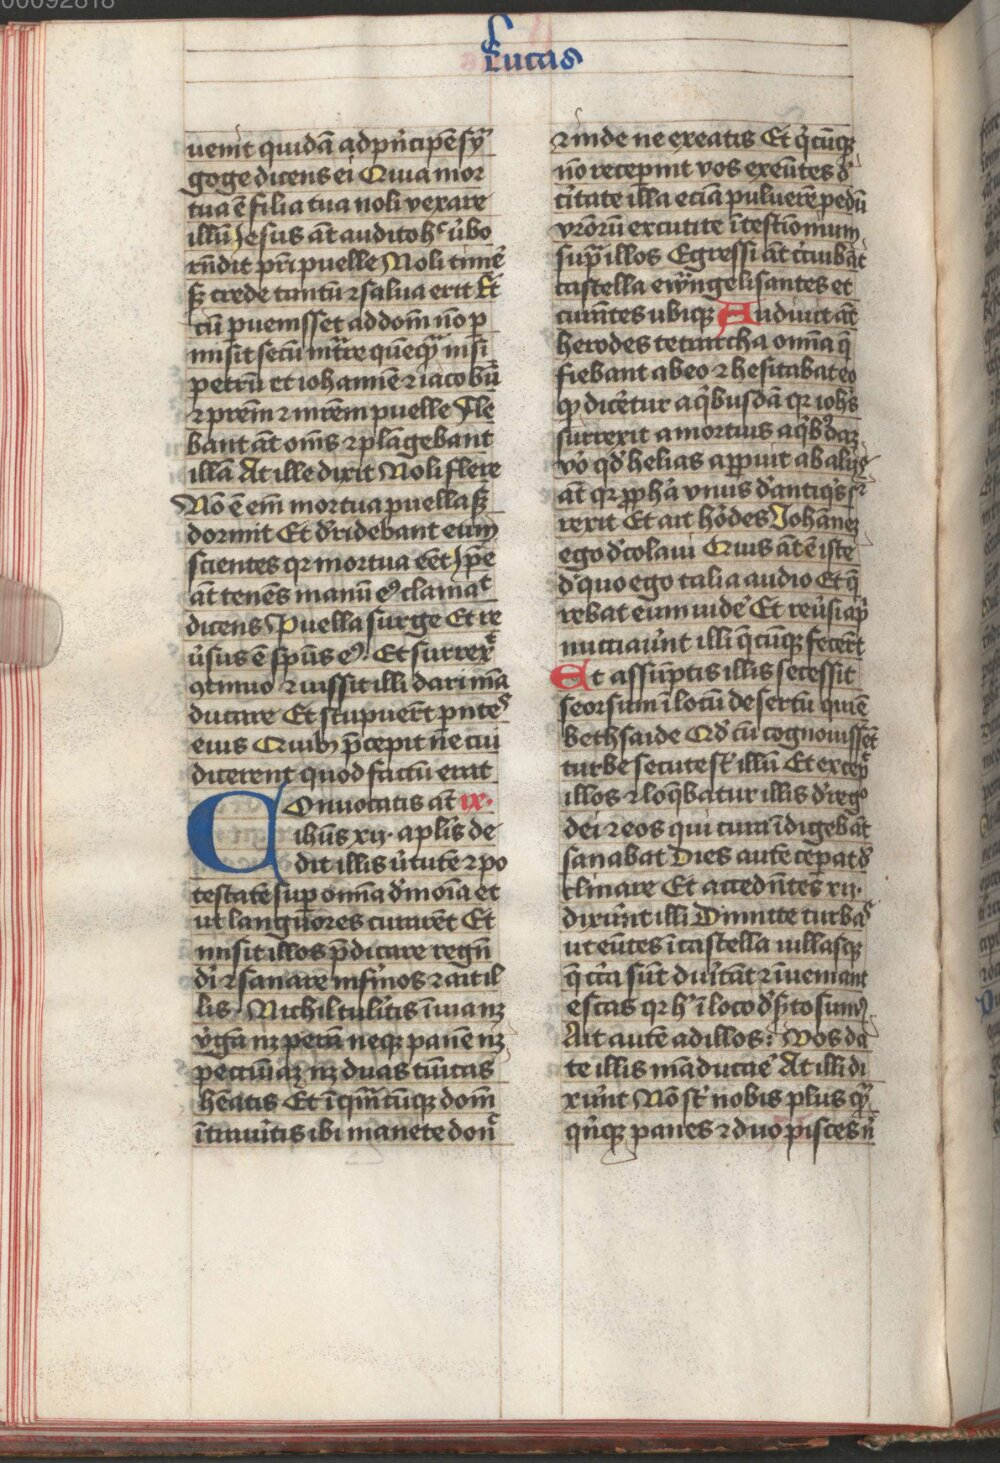 00092818
Lucas
uenit quidā ad pⁱncipē sẏ
goge dicens ei Quia mor
tua ē filia tua noli vexare
illū Jesus āt audito hͨ ůbo
rn̄dit pr̄i puelle Noli timē
sꝫ crede tantū ⁊ salua erit Et
cū ꝑuenisset ad domū nō ꝑ
misit secū ītͣre quēqͣ nisi
petrū et iohannē ⁊ iacobū
⁊ pr̄em ⁊ mr̄em puelle Fle
bant āt om̄s ⁊ plāgebant
illā At ille dixit Noli flere
Nō ē em̄ mortua puella sꝫ
dormit Et d̓ridebant eum
scientes qꝛ mortua eēt Jp̄e
āt tenēs manū eꝰ clamaͭ
dicens Puella surge Et re
ůsus ē sp̄us eꝰ Et surrexͭ
ꝯtinuo ⁊ iussit illi dari mā
ducare Et stupuer̄t pn̄teˢ
eius Quibꝫ p̄cepit ne cui
dicerent quod factū erat
Conuocatis āt ix·
ibūs xij· apl̄is de
dit illis ůtutē ⁊ po
testatē suꝑ om̄ia d̓monia et
ut languores curarēt Et
misit illos p̄dicare regn̄
dī ⁊ sanare infⁱmos ⁊ ait il
lis· Nichil tulītis ī uia nꝫ
vⁱgā nꝫ perā neqꝫ panē nꝫ
pecuniaꝫ nꝫ duas tunicas
hēatis Et ī qm̄cūqꝫ domū
ītrauītis ibi manete donͨ
⁊ inde ne exeatis Et qⁱcūqꝫ
nō recepint vos exeūtes d̓
cītate illa eciā puluerē pedū
vr̄orū excutite ī testīomium
supͣ illos Egressi āt cͥcuibāt
castella ewͣngelisantes et
curātes ubiqꝫ Audiuit āt
herodes tetrarcha om̄ia q̄
fiebant ab eo ⁊ hesitabat eo
ꝙ dicētur a qⁱbusdā qꝛ ioh̄s
surrexit a mortuis a qⁱbꝰdaꝫ
vō qd̓ helias apparuit ab alijs
āt qꝛ ꝓph̄a vnus d̓ antiqⁱs sr̄
rexit Et ait h̓odes Johāneꝫ
ego d̓colaui Quis āt ē iste
d̓ quo ego talia audio Et q̄
rebat eum uidē Et reůsi apⁱ
nucciauīt illi q̄cūqꝫ fecer̄t
Et assūptis illis secessit
seorsum ī locū desertū qui ē
bethsaide Qd̓ cū cognouissēt
turbe secute sͭ illū Et excep̄
illos ⁊ loq̄batur illis d̓ regͦ
dei ⁊ eos qui cura īdigebāt
sanabat Dies autē cepat d̓
clinare Et accedētes xij·
dixūnt illi Dimitte turbaˢ
ut eūtes ī castella uillasqꝫ
q̄ cͥca sūt duītāt ⁊ īueniant
escas qꝛ hͥ ī loco d̓s̓to sumꝰ
Ait autē ad illos: Vos da
te illis māducaē At illi di
xūnt Nō sͭ nobis plus qͣ
qⁱnqꝫ panes ⁊ duo pisces nⁱ